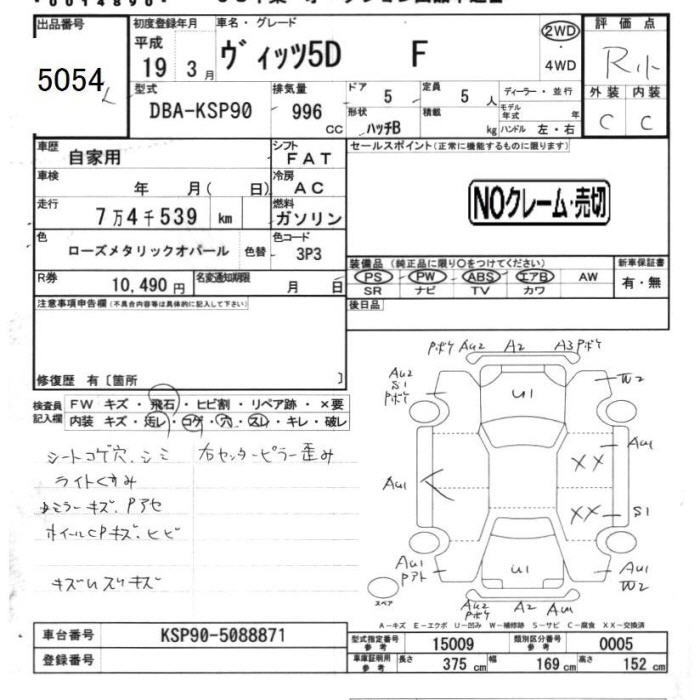 出品番号
5054
初度登録年月
平成
19 3月
車名・グレード
ヴィッツ5D F
2WD
・
4WD
評価点
R
外装 内装
C C
型式
DBA-KSP90
排気量
996
cc
ドア
5
定員
5 人
ディーラー・並行
形状
ハッチB
積載
kg
モデル年式 年
ハンドル 左・右
車歴
自家用
シフト
FAT
セールスポイント(正常に機能するものに限ります)
車検
年 月( 日)
冷房
AC
NOクレーム・売切
走行
7万4千539 km
燃料
ガソリン
色
ローズメタリックオパール
色替
色コード
3P3
装備品(純正品に限り○をつけてください)
PS PW ABS エアB AW
SR ナビ TV カワ
新車保証書
有・無
R券
10,490円
名変通知期限
月 日
後日品
注意事項申告欄(不具合内容等は具体的に記入して下さい)
修復歴 有〔箇所 〕
検査員記入欄
FW キズ・飛石・ヒビ割・リペア跡・×要
内装 キズ・汚レ・コゲ・穴・スレ・キレ・破レ
シートコゲ穴.シミ 右センターピラー歪み
ライトくすみ
ミラーキズ.Pアセ
ホイールCPキズ.ヒビ
キズUスリキズ
Pボケ AU2 A2 A3 Pボケ
AU2
S1
Pボケ
U1
W2
AU1
XX
AU1
XX
S1
AU1
Pアト
U1
AU1
W2
スペア
AU2
Pボケ
A2 AU1
A-キズ E-エクボ U-凹み W-補修跡 S-サビ C-腐食 XX-交換済
車台番号
KSP90-5088871
登録番号
型式指定番号
参考
15009
類別区分番号
参考
0005
車庫証明用
参考
長さ
375 cm
幅
169 cm
高さ
152 cm